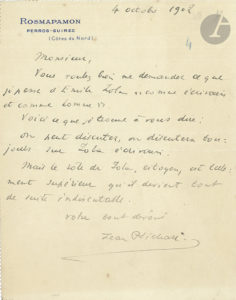 4 octobre 1902
ROSMAPAMON
PERROS-GUIREC
(Côtes du Nord)
4
Monsieur,
Vous voulez bien me demander ce que
je pense d'Emile Zola comme écrivain
et comme homme
Voici ce que je trouve à vous dire :
on peut discuter, on discutera tou-
jours sur Zola écrivain.
Mais le rôle de Zola, citoyen, est telle-
ment supérieur qu'il devient tout
de suite indiscutable.
votre tout dévoué